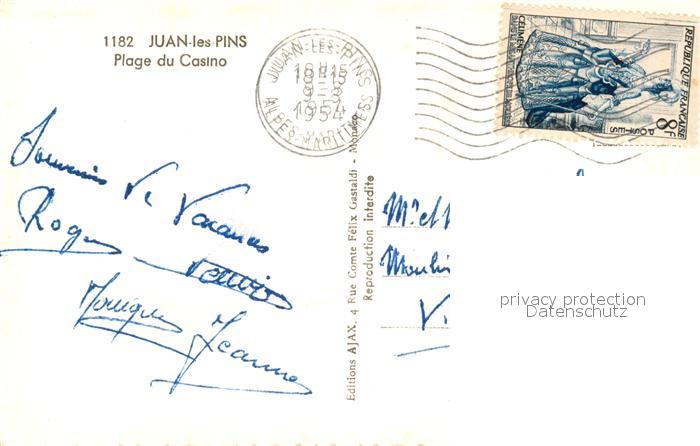 1182 JUAN-les-PINS
Plage du Casino
JUAN-LES-PINS
18H15
1954
ALPES-MARITIMES
CELIMENE
REPUBLIQUE FRANCAISE
POSTES
8F
Souvenirs de Vacances
Roger
Monique
Jeanne
Editions AJAX, 4 Rue Comte Félix Gastaldi - Monaco
Reproduction interdite
Mr et
Moulin
V
privacy protection
Datenschutz